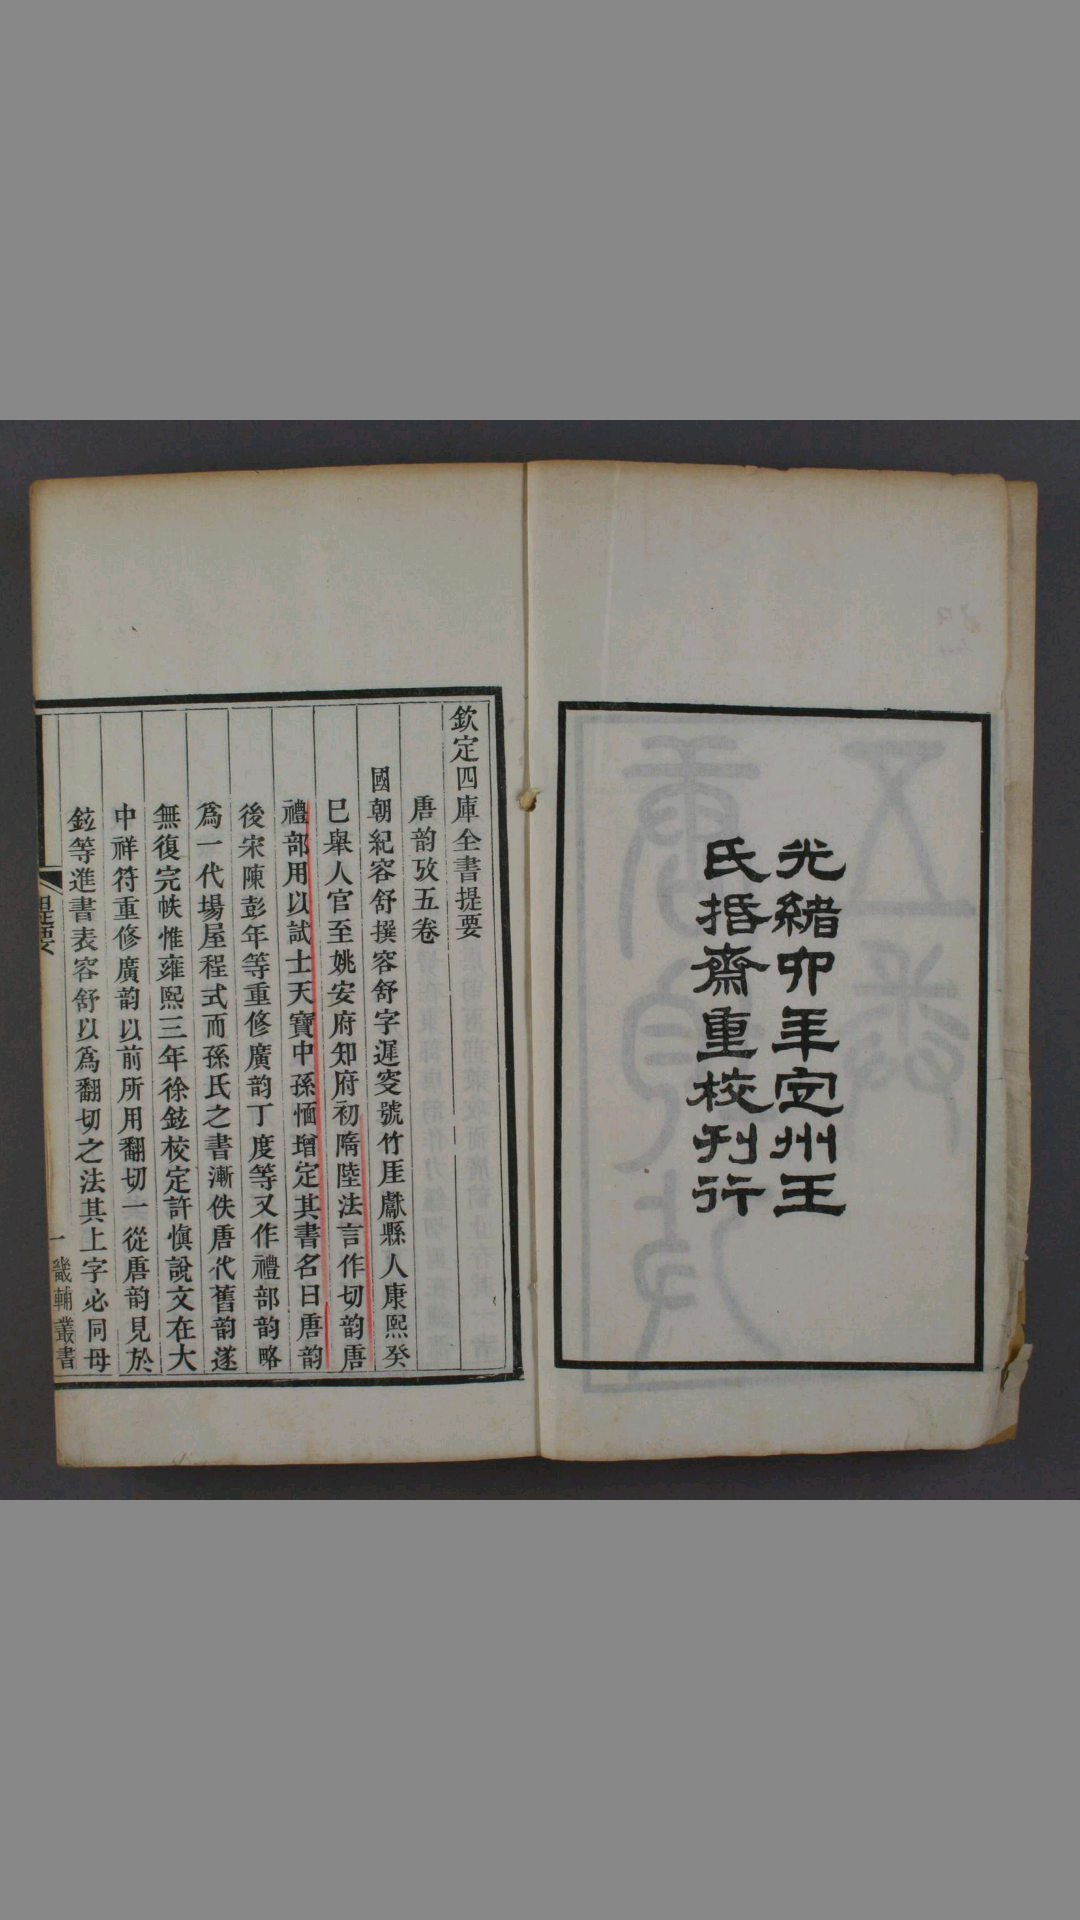 光緒卯年定州王
氏㨉齋重校刊行
欽定四庫全書提要
唐韵攷五卷
國朝紀容舒撰容舒字遲叟號竹厓獻縣人康熙癸
巳舉人官至姚安府知府初隋陸法言作切韵唐
禮部用以試士天寶中孫愐增定其書名曰唐韵
後宋陳彭年等重修廣韵丁度等又作禮部韵略
爲一代場屋程式而孫氏之書漸佚唐代舊韵遂
無復完帙惟雍熙三年徐鉉校定許愼說文在大
中祥符重修廣韵以前所用翻切一從唐韵見於
鉉等進書表容舒以爲翻切之法其上字必同母
提要
一
畿輔叢書